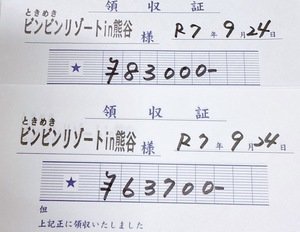 領収証
ときめき
ピンピンリゾートin熊谷 様 R7年9月24日
★ ¥83000-
領収証
ときめき
ピンピンリゾートin熊谷 様 R7年9月24日
★ ¥63700-
但
上記正に領収いたしました